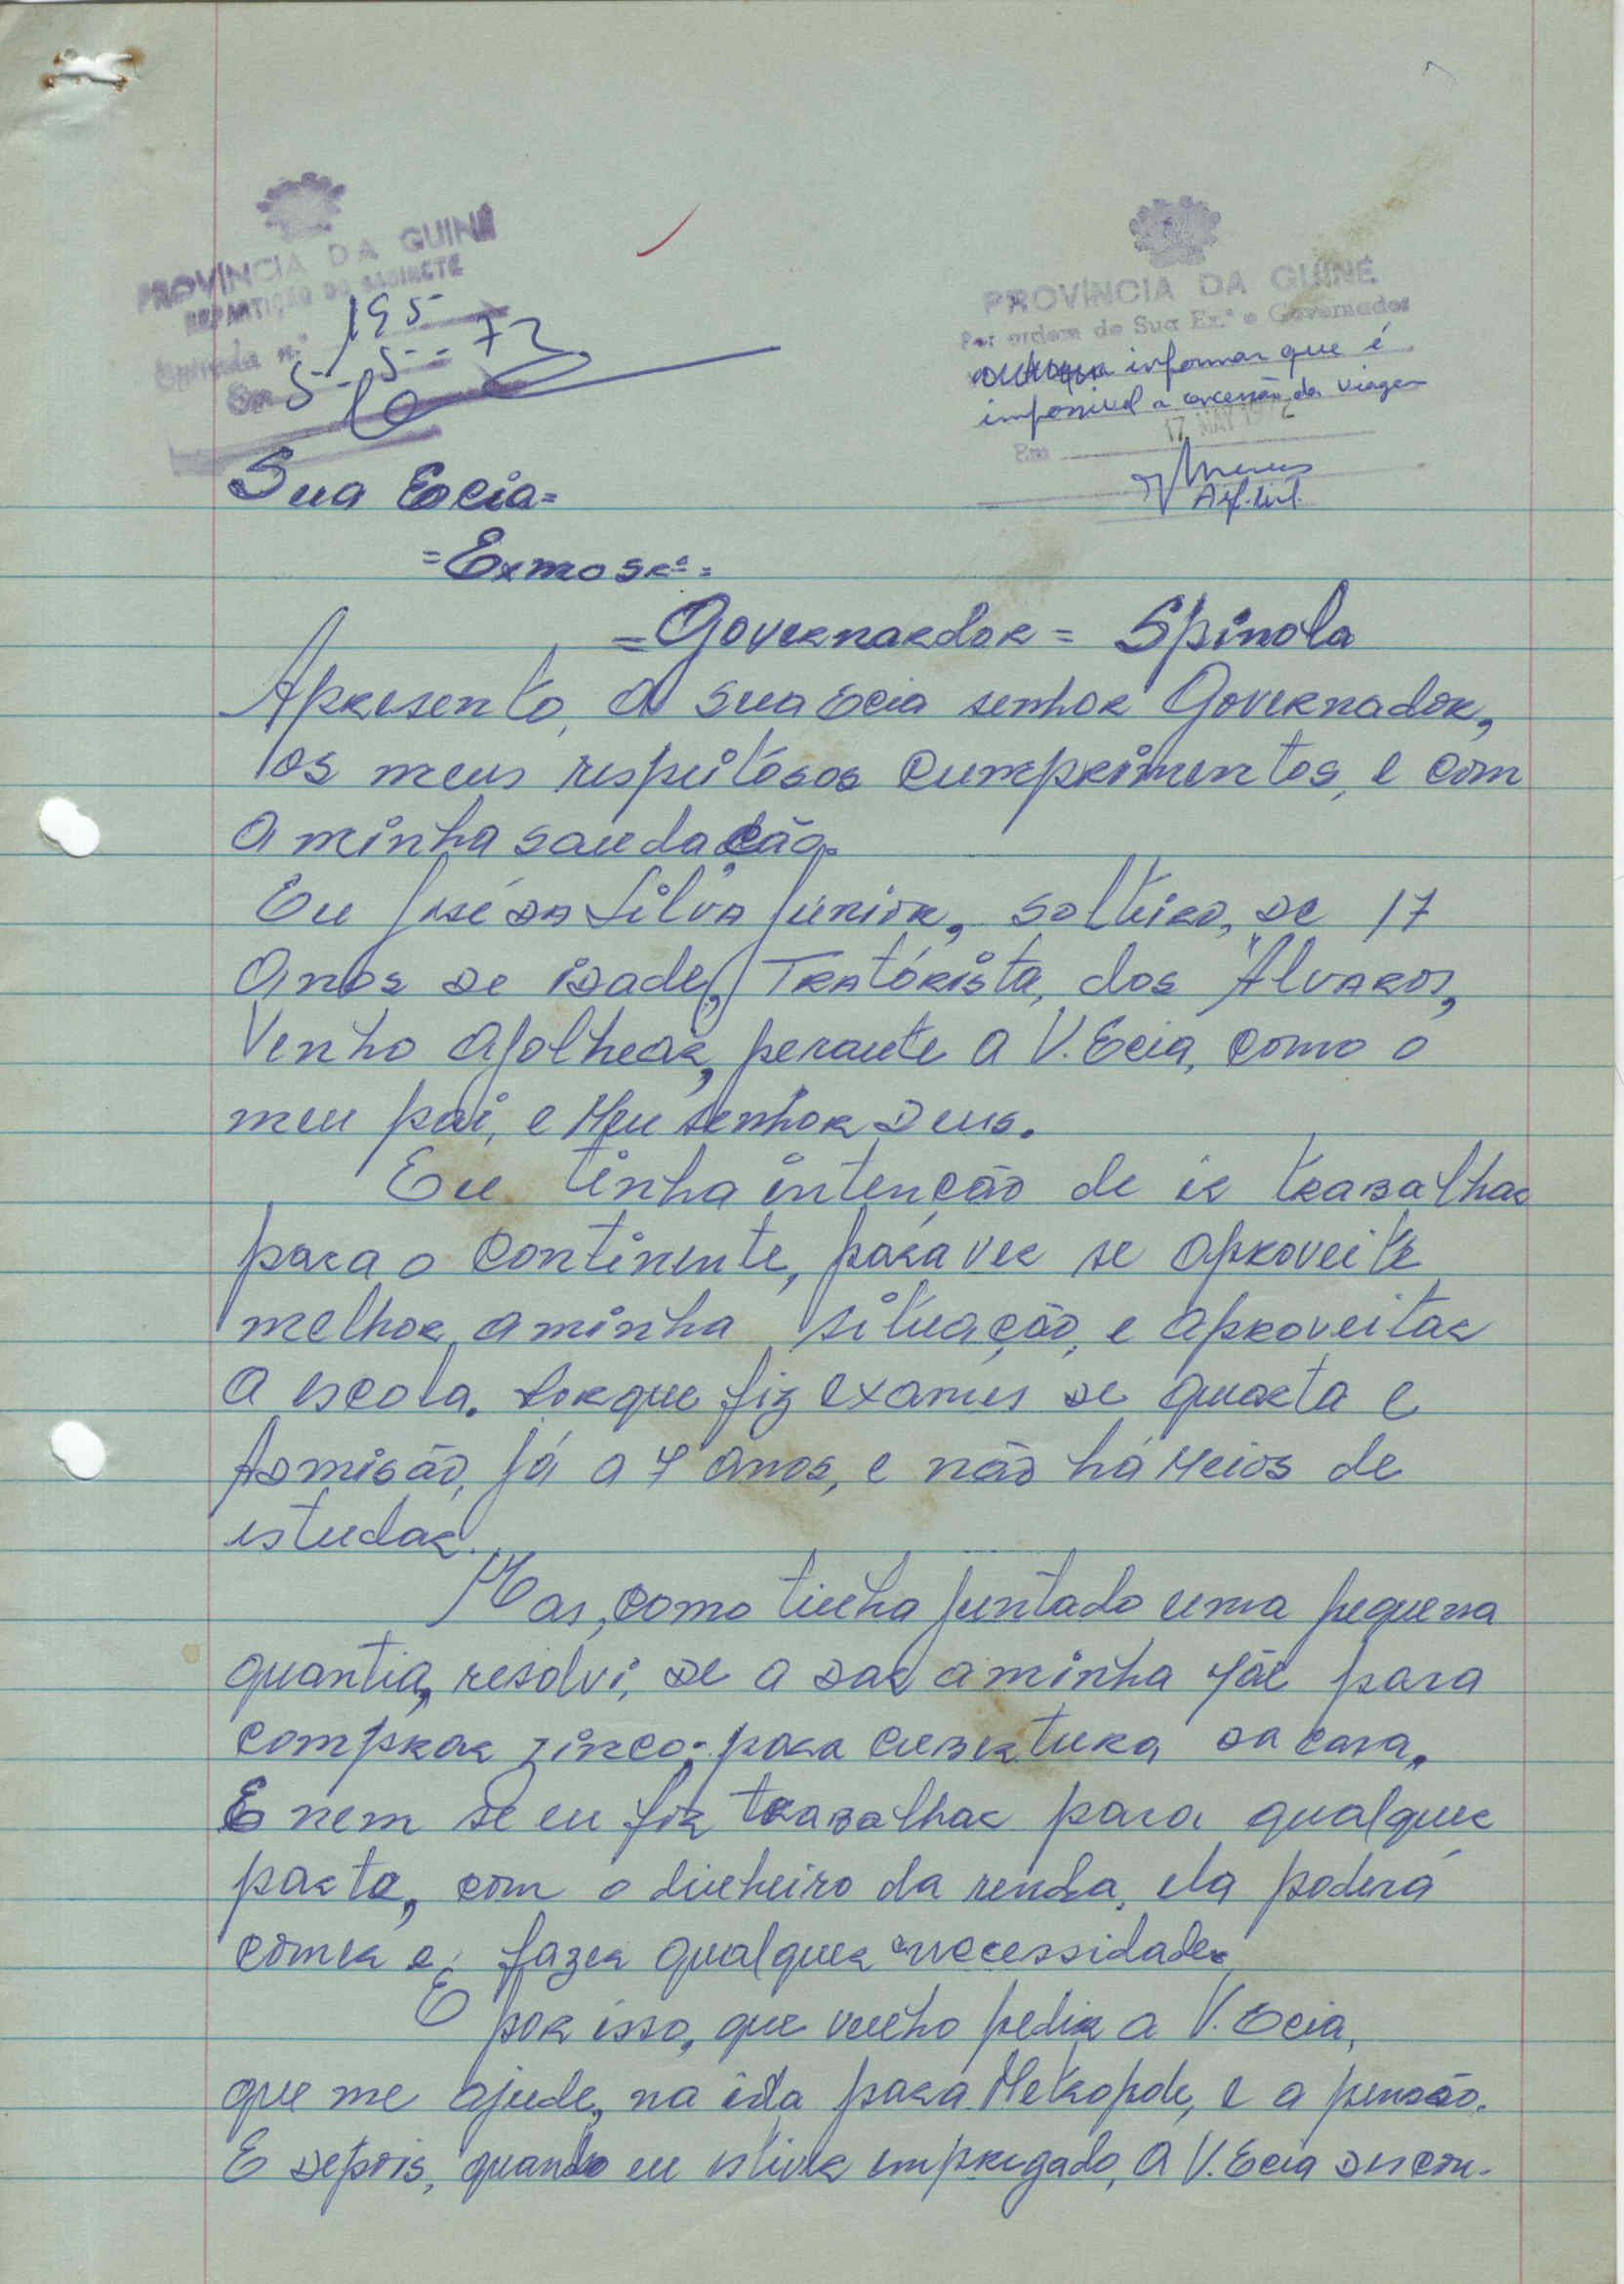 PROVÍNCIA DA GUINÉ
REPARTIÇÃO DO GABINETE
Entrada n.º 195
Em 5-5-72
PROVÍNCIA DA GUINÉ
Por ordem de Sua Ex.ª o Governador
informar que é
impossivel a concessão da viagem
17 MAY 1972
Em
Sua Ecia=
=Exmo Sr.=
=Governardor= Spinola
Apresento, a sua Ecia senhor Governador,
os meus respeitosos cumprimentos, e com
a minha saudacão.
Eu José da Silva Júnior, solteiro, de 17
anos de idade, Tratórista, dos Álvaros,
Venho ajolhear, perante a V. Ecia, como o
meu pai, e Meu senhor Deus.
Eu tinha intenção de ir trabalhar
para o continente, para ver se aproveite
melhor, a minha situação, e aproveitar
a escola. Porque fiz exames de quarta e
Admisão, já a 4 anos, e não há Meios de
estudar.
Mas, como tinha juntado uma pequena
quantia, resolvi, de a dar a minha Mãe para
comprar zinco; para cubertura da casa.
E nem se eu fir trabalhar para qualquer
parte, com o dinheiro da renda, ela poderá
comer e, fazer qualquer necessidade.
E por isso, que venho pedir a V. Ecia,
que me ajude, na ida para Metropole, e a pensão.
E depois, quando eu estiver empregado, a V. Ecia descon-